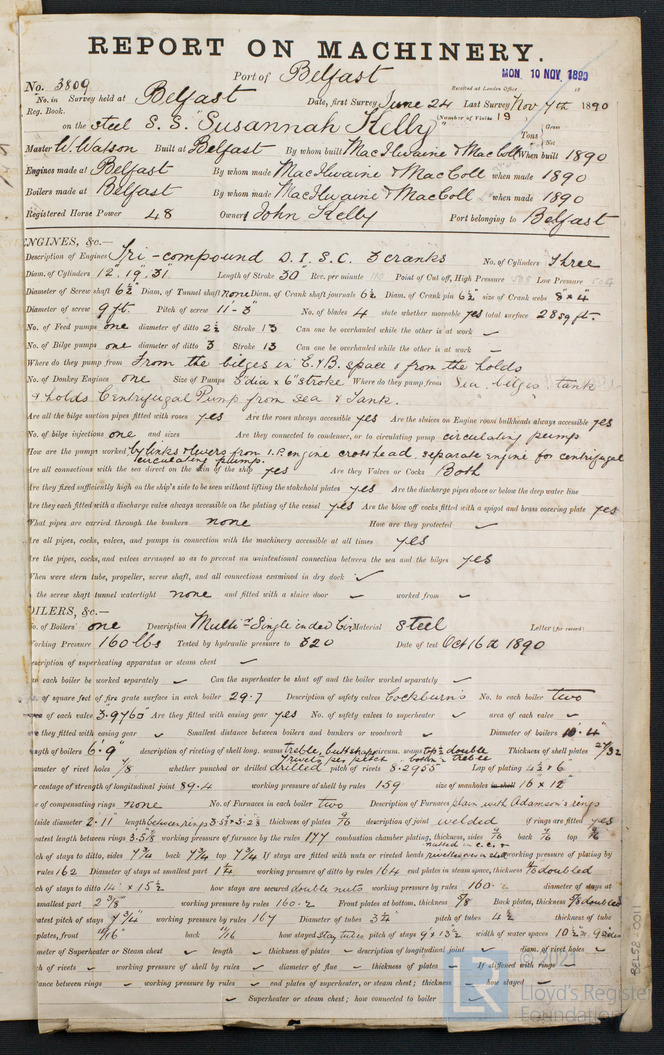 REPORT ON MACHINERY.
Port of Belfast
MON. 10 NOV. 1890
Received at London Office 18
No. 3809
No. in Survey held at Belfast Date, first Survey June 24 Last Survey Nov 7th 1890
Reg. Book. (Number of Visits 19)
on the steel S.S. "Susannah Kelly" Tons Gross Net
Master W. Watson Built at Belfast By whom built MacIlwaine & MacColl When built 1890
Engines made at Belfast By whom made MacIlwaine & MacColl when made 1890
Boilers made at Belfast By whom made MacIlwaine & MacColl when made 1890
Registered Horse Power 48 Owners John Kelly Port belonging to Belfast
ENGINES, &c.—
Description of Engines Tri-compound D.I.S.C. 3 cranks No. of Cylinders Three
Diam. of Cylinders 12", 19", 31" Length of Stroke 30" Rev. per minute 110 Point of Cut off, High Pressure Low Pressure
Diameter of Screw shaft 6½" Diam. of Tunnel shaft none Diam. of Crank shaft journals 6½ Diam. of Crank pin 6½ size of Crank webs 8" x 4"
Diameter of screw 9 ft. Pitch of screw 11-3" No. of blades 4 state whether moveable yes total surface 28 sq ft.
No. of Feed pumps one diameter of ditto 2½ Stroke 13 Can one be overhauled while the other is at work ✓
No. of Bilge pumps one diameter of ditto 3 Stroke 13 Can one be overhauled while the other is at work ✓
Where do they pump from From the bilges in E & B. space & from the holds
No. of Donkey Engines one Size of Pumps 3" dia x 6" stroke Where do they pump from Sea, bilges, tank
& holds Centrifugal Pump from sea & Tank.
Are all the bilge suction pipes fitted with roses yes Are the roses always accessible yes Are the sluices on Engine room bulkheads always accessible yes
No. of bilge injections one and sizes Are they connected to condenser, or to circulating pump circulating pump
How are the pumps worked by links & levers from I.P. engine crosshead. separate engine for centrifugal
circulating pump.
Are all connections with the sea direct on the skin of the ship yes Are they Valves or Cocks Both
Are they fixed sufficiently high on the ship's side to be seen without lifting the stokehold plates yes Are the discharge pipes above or below the deep water line
Are they each fitted with a discharge valve always accessible on the plating of the vessel yes Are the blow off cocks fitted with a spigot and brass covering plate yes
What pipes are carried through the bunkers none How are they protected ✓
Are all pipes, cocks, valves, and pumps in connection with the machinery accessible at all times yes
Are the pipes, cocks, and valves arranged so as to prevent an unintentional connection between the sea and the bilges yes
When were stern tube, propeller, screw shaft, and all connections examined in dry dock ✓
the screw shaft tunnel watertight none and fitted with a sluice door ✓ worked from ✓
OILERS, &c.—
No. of Boilers one Description Multr Single ended Cirr Material steel Letter (for record)
Working Pressure 160 lbs Tested by hydraulic pressure to 320 Date of test Oct 16th 1890
escription of superheating apparatus or steam chest ✓
an each boiler be worked separately ✓ Can the superheater be shut off and the boiler worked separately ✓
o. of square feet of fire grate surface in each boiler 29.7 Description of safety valves Cockburn's No. to each boiler two
rea of each valve 3.9760" Are they fitted with easing gear yes No. of safety valves to superheater ✓ area of each valve ✓
re they fitted with easing gear ✓ Smallest distance between boilers and bunkers or woodwork ✓ Diameter of boilers 10'.4"
ength of boilers 6'.9" description of riveting of shell long. seams treble, butt straps circum. seams top & double Thickness of shell plates 27/32
ameter of rivet holes 7/8 whether punched or drilled drilled pitch of rivets 3.2955 Lap of plating 4½ x 6"
r centage of strength of longitudinal joint 89.4 working pressure of shell by rules 159 size of manholes in shell 16" x 12"
e of compensating rings none No. of Furnaces in each boiler two Description of Furnaces plain with Adamson's rings
tside diameter 2'.11" length between rings thickness of plates 9/16 description of joint welded if rings are fitted yes
eatest length between rings working pressure of furnace by the rules 177 combustion chamber plating, thickness, sides 9/16 back 9/16 top 9/16
ch of stays to ditto, sides 7¾ back 7¾ top 7¾ If stays are fitted with nuts or riveted heads nutted in c.c. & working pressure of plating by
rules 162 Diameter of stays at smallest part 1¼ working pressure of ditto by rules 164 end plates in steam space, thickness doubled
ch of stays to ditto 14" x 15½ how stays are secured double nuts working pressure by rules 160.2 diameter of stays at
smallest part 2⅜ working pressure by rules 160.2 Front plates at bottom, thickness 7/8 Back plates, thickness doubled
eatest pitch of stays 7¾" working pressure by rules 167 Diameter of tubes 3¼ pitch of tubes 4½ thickness of tube
plates, front 11/16" back 11/16 how stayed Stay tubes pitch of stays 9" x 13½ width of water spaces 10½" x
meter of Superheater or Steam chest ✓ length ✓ thickness of plates ✓ description of longitudinal joint ✓ diam. of rivet holes ✓
ch of rivets ✓ working pressure of shell by rules ✓ diameter of flue ✓ thickness of plates ✓ If stiffened with rings ✓
tance between rings ✓ working pressure by rules ✓ end plates of superheater, or steam chest; thickness ✓ how stayed ✓
✓ Superheater or steam chest; how connected to boiler ✓
BEL58-0011
© 2021
LR
Lloyd's Register
Foundation